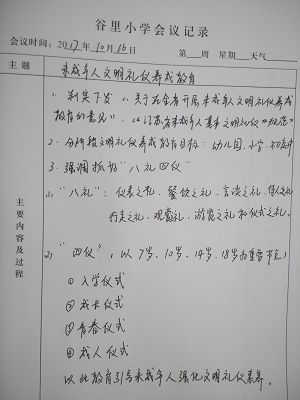 谷里小学会议记录
会议时间：2017年10月16日 第 周 星期 天气
主题 未成年人文明礼仪养成教育
主要内容及过程
1. 制定下发《关于在全省开展未成年人文明礼仪养成
教育的意见》、《江苏省未成年人基本文明礼仪规范》
2. 分阶段文明礼仪养成教育目标：幼儿园、小学、初高中
3. 强调抓好"八礼四仪"
1) "八礼"：仪表之礼、餐饮之礼、言谈之礼、待人之礼
行走之礼、观赏之礼、游览之礼和仪式之礼。
2) "四仪"，以7岁、10岁、14岁、18岁为重要节点
① 入学仪式
② 成长仪式
③ 青春仪式
④ 成人仪式
以此教育引导未成年人强化文明礼仪素养。